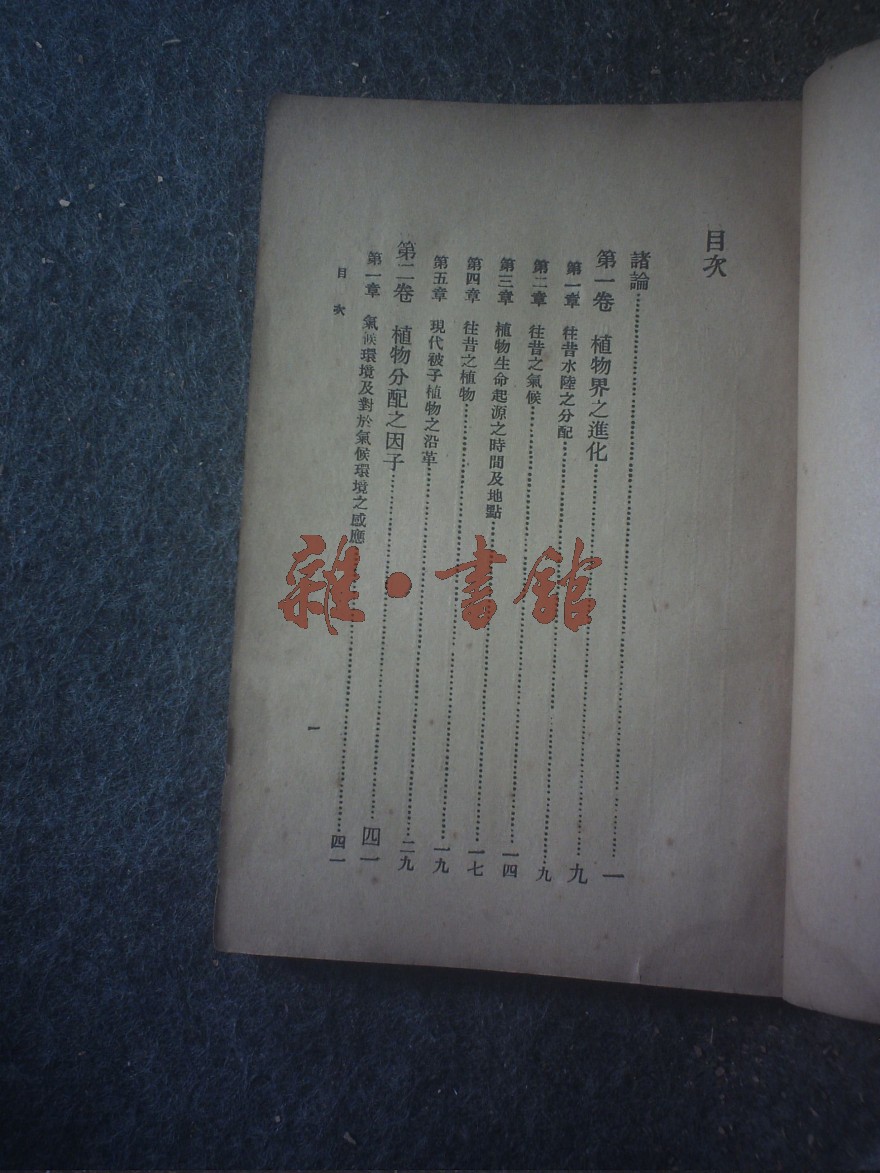 目次
諸論……一
第一卷 植物界之進化……九
第一章 往昔水陸之分配……九
第二章 往昔之氣候……一四
第三章 植物生命起源之時間及地點……一七
第四章 往昔之植物……一九
第五章 現代被子植物之沿革……二九
第二卷 植物分配之因子……四一
第一章 氣候環境及對於氣候環境之感應……四一
目次
一
雜·書館